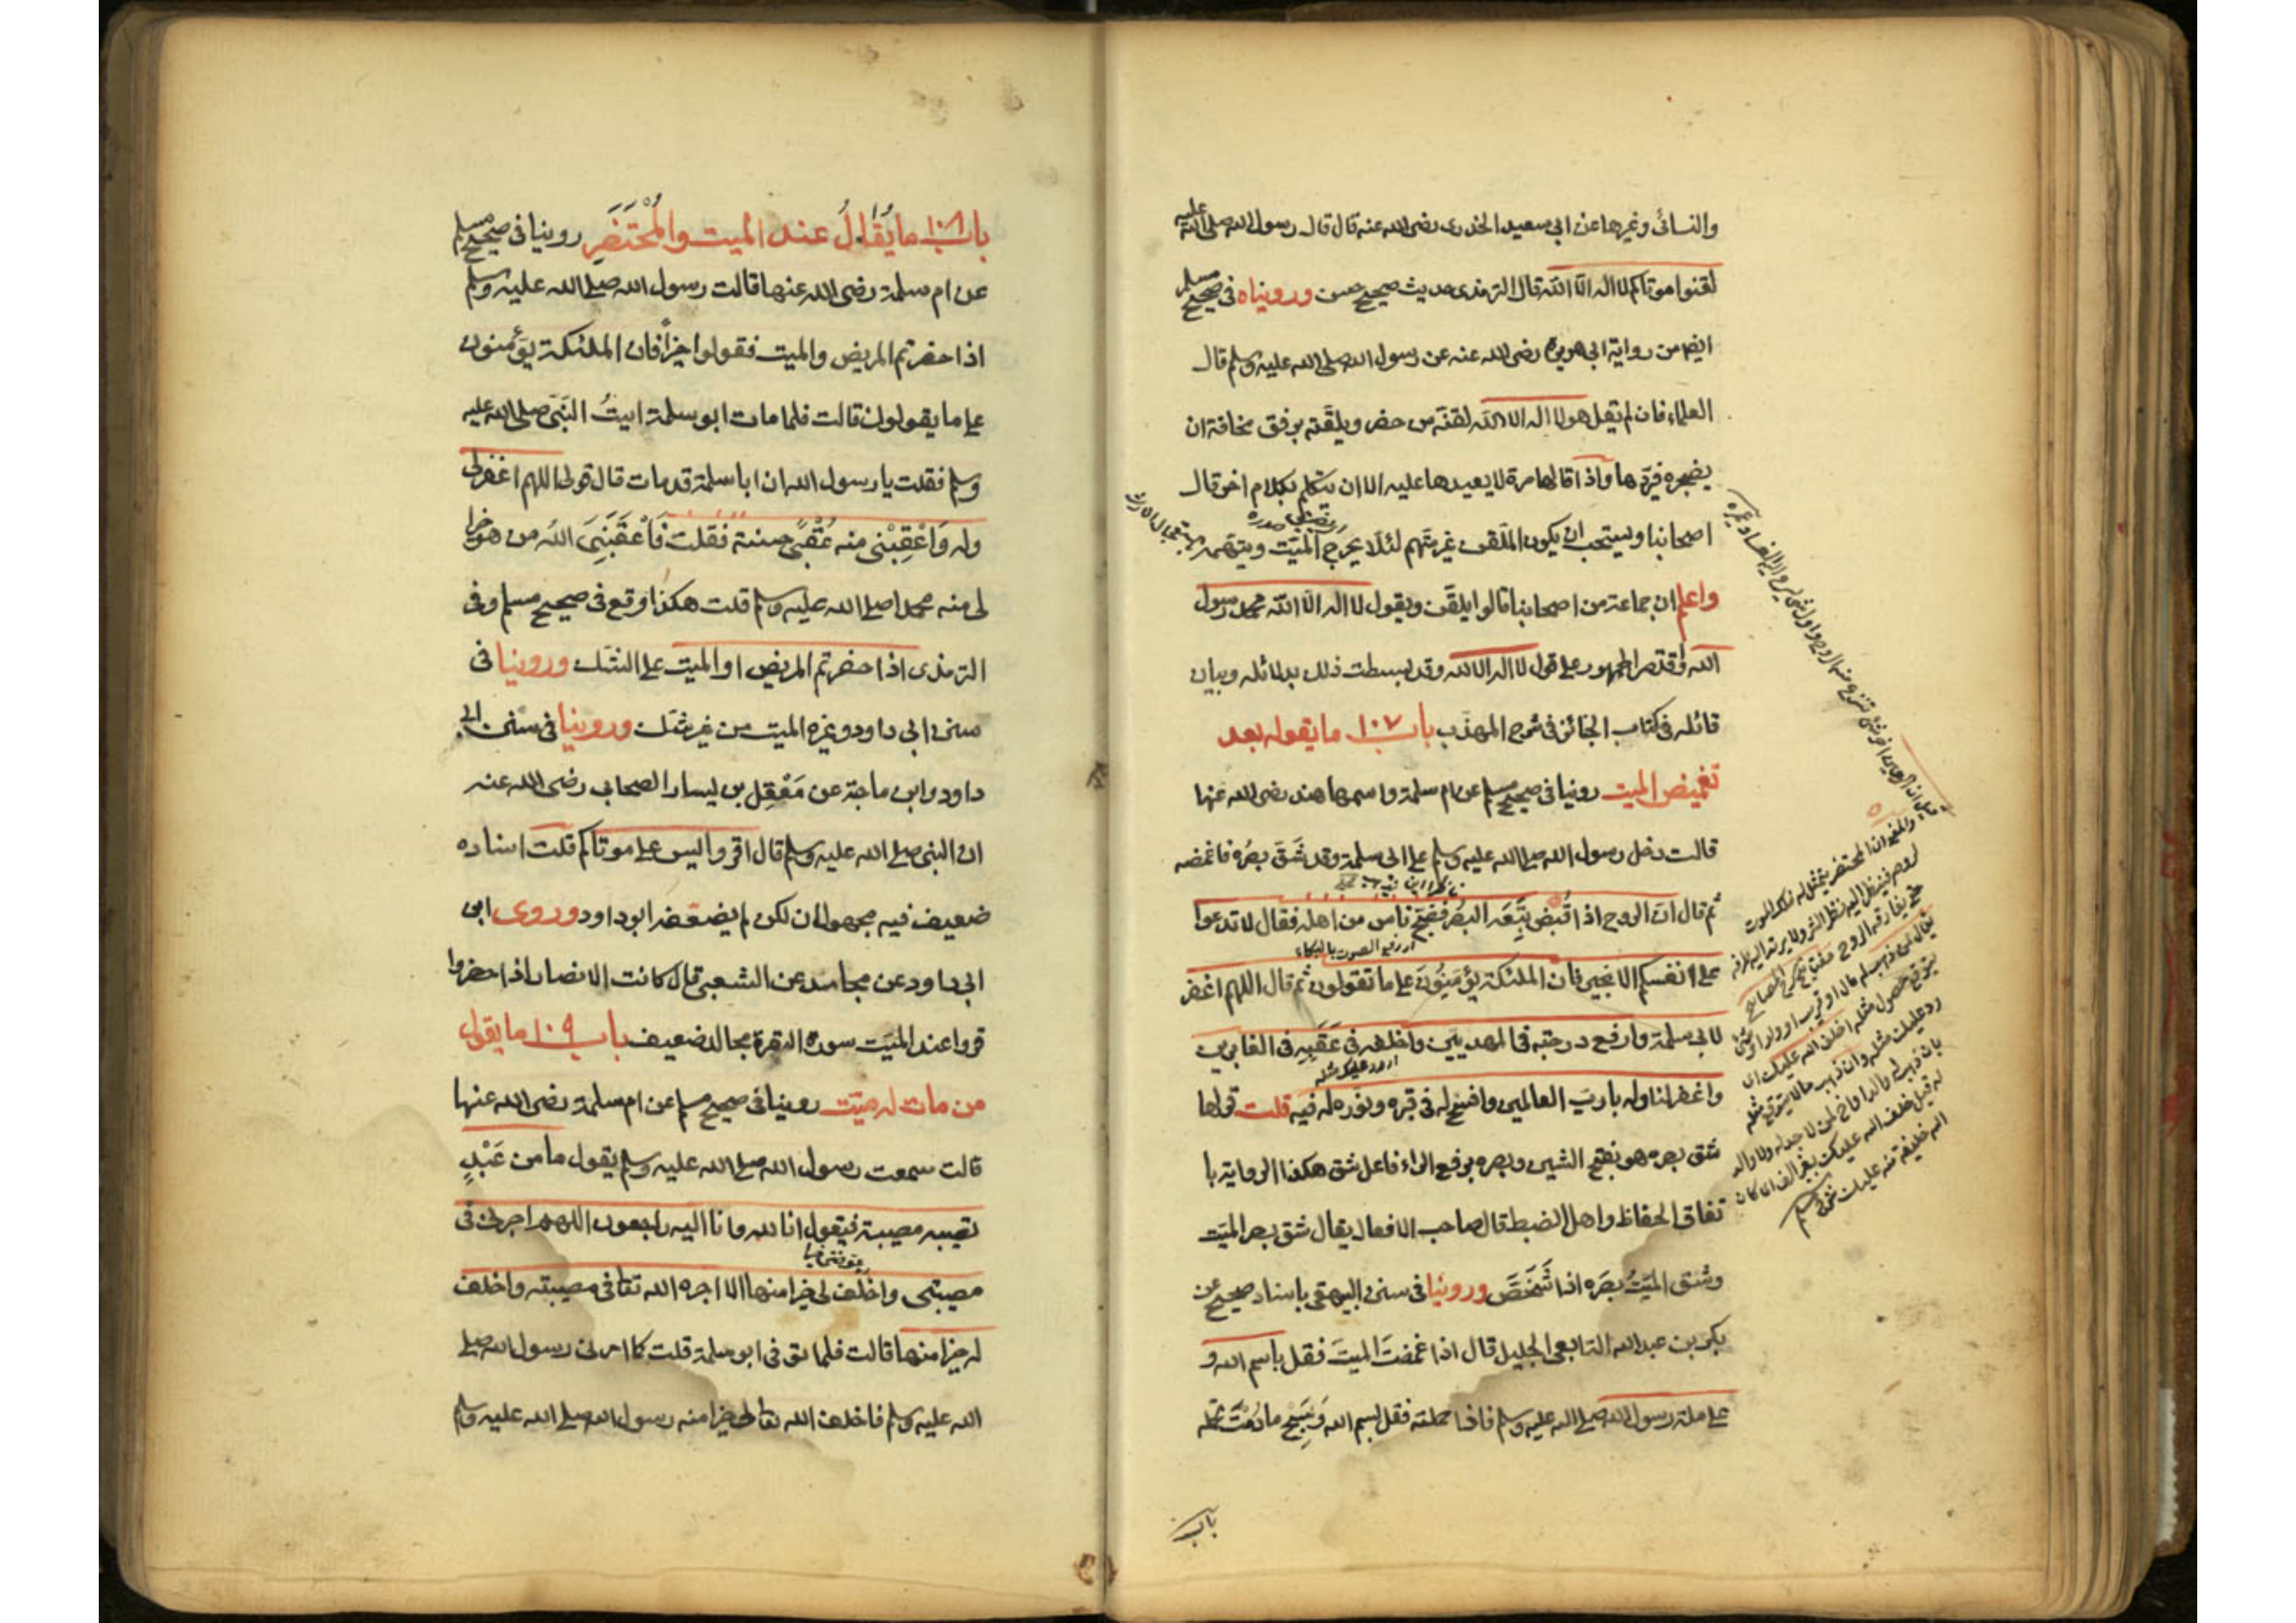 والنسائى وغيرها عن ابى سعيد الخدرى رضى الله عنه قال قال رسول الله صلى الله عليه
لقنوا موتاكم لا اله الا الله قال الترمذى حديث صحيح حسن ورويناه فى صحيح مسلم
ايضا من رواية ابى هريرة رضى الله عنه عن رسول الله صلى الله عليه وسلم قال
العلماء فان لم تقل هو لا اله الا الله لقنه من حضر ويلقنه برفق مخافة ان
يضجره فيردها واذا قالها مرة لا يعيدها عليه الا ان يتكلم بكلام اخر قال
اصحابنا ويستحب ان يكون الملقن غير متهم لئلا يحرج الميت ويتهمه
واعلم ان جماعة من اصحابنا قالوا يلقن ويقول لا اله الا الله محمد رسول
الله واقتصر الجمهور على قول لا اله الا الله وقد بسطت ذلك بدلائله وبيان
قائله فى كتاب الجنائز فى شرح المهذب باب ١٠٧ ما يقوله بعد
تغميض الميت روينا فى صحيح مسلم عن ام سلمة واسمها هند رضى الله عنها
قالت دخل رسول الله صلى الله عليه وسلم على ابى سلمة وقد شَقَّ بصرُه فاغمضه
ثم قال ان الروح اذا قُبض تَبِعَه البصر فضج ناس من اهله فقال لا تدعوا
اى رفع الصوت بالبكاء
على انفسكم الا بخير فان الملئكة يؤمنون على ما تقولون ثم قال اللهم اغفر
لابى سلمة وارفع درجته فى المهديين واخلفه فى عَقَبِه فى الغابرين
واغفر لنا وله يا رب العالمين وافسح له فى قبره ونور له فيه قلت قولها
شق بصره هو بفتح الشين وبصره برفع الراء فاعل شق هكذا الرواية با
تفاق الحفاظ واهل الضبط قال صاحب الافعال يقال شق بصر الميت
وشق الميّتُ بصَرَه اذا شَخَصَ وروينا فى سنن البيهقى باسناد صحيح عن
بكر بن عبد الله التابعى الجليل قال اذا غمضت الميت فقل باسم الله و
على ملة رسول الله صلى الله عليه وسلم فاذا حملته فقل بسم الله وسَبِّحْ ما دمت تحمله
باب
باب ١٠٨ ما يُقالُ عند الميت والمُحْتَضَرِ روينا فى صحيح مسلم
عن ام سلمة رضى الله عنها قالت رسول الله صلى الله عليه وسلم
اذا حضرتم المريض والميت فقولوا خيراً فان الملئكة يؤمنون
على ما يقولون قالت فلما مات ابو سلمة اتيتُ النبى صلى الله عليه
وسلم فقلت يا رسول الله ان ابا سلمة قد مات قال قولى اللهم اغفر لى
وله وَاَعْقِبْنى منه عُقْبًى حسنة فقلت فَاَعْقَبَنِىَ الله من هو خير
لى منه محمد صلى الله عليه وسلم قلت هكذا وقع فى صحيح مسلم وفى
الترمذى اذا حضرتم المريض او الميت على الشك وروينا فى
سنن ابى داود وغيره الميت من غير شك وروينا فى سنن ابى
داود وابن ماجة عن مَعْقِل بن يسار الصحابى رضى الله عنه
ان النبى صلى الله عليه وسلم قال اقروا ليس على موتاكم قلت اسناده
ضعيف فيه مجهولان لكن لم يضعفه ابو داود وروى ابن
ابى داود عن مجالد عن الشعبى قال كانت الانصار اذا حضروا
قروا عند الميت سورة البقرة مجالد ضعيف باب ١٠٩ ما يقول
من مات له ميّت روينا فى صحيح مسلم عن ام سلمة رضى الله عنها
قالت سمعت رسول الله صلى الله عليه وسلم يقول ما من عَبْدٍ
تصيبه مصيبة فيقول انا لله وانا اليه راجعون اللهم اجرنى فى
مصيبتى واخلف لى خيرا منها الا اجره الله تعا فى مصيبته واخلف
له خيرا منها قالت فلما توفى ابو سلمة قلت كما امرنى رسول الله صلى
الله عليه وسلم فاخلف الله تعا لى خيرا منه رسول الله صلى الله عليه وسلم